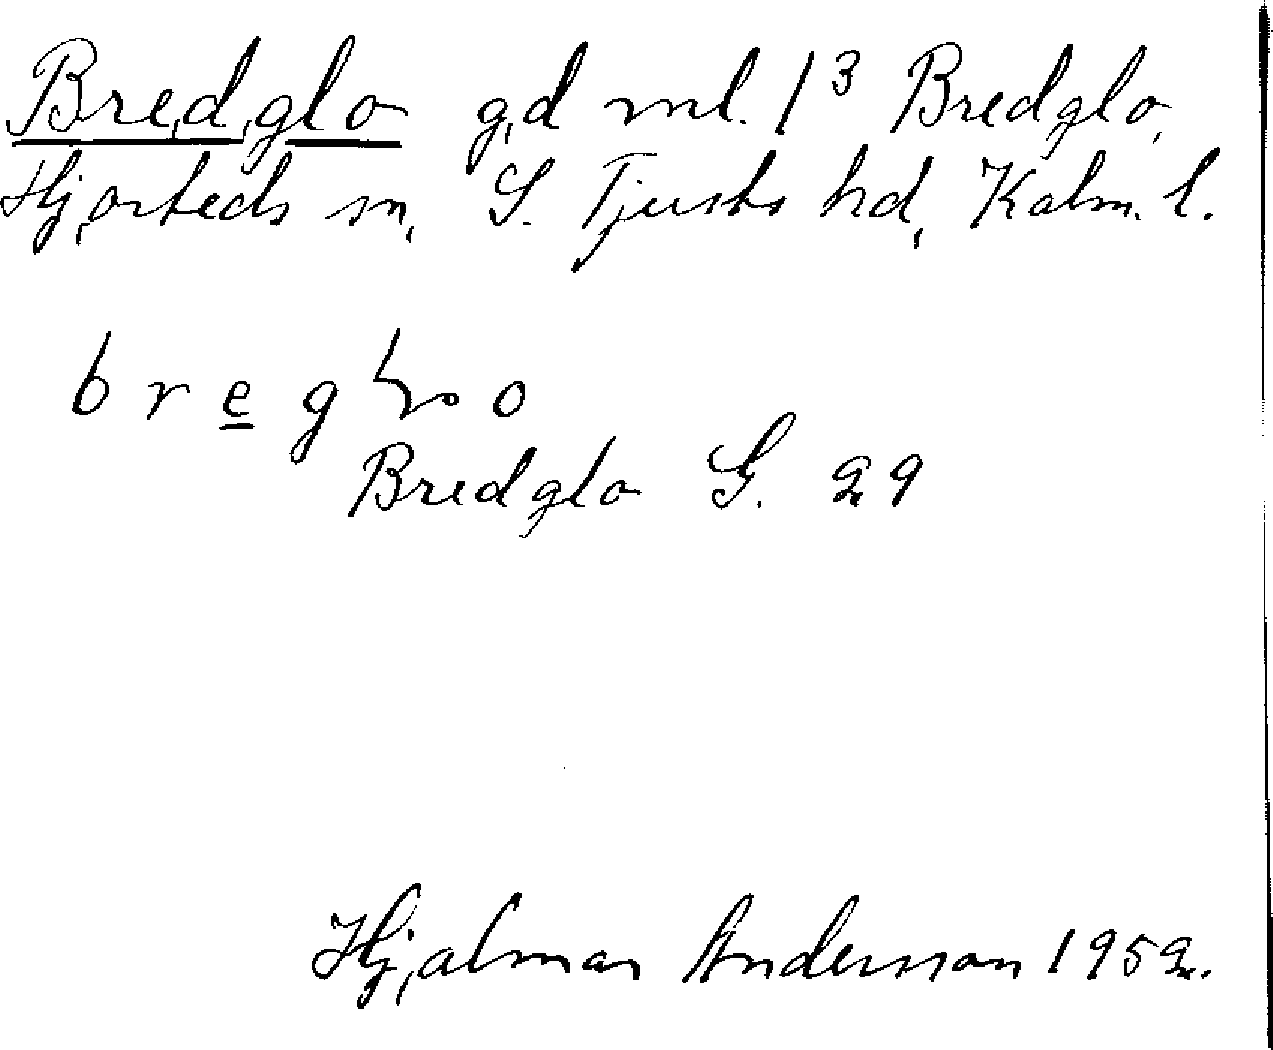 Bredglo gd ml. 1³ Bredglo,
Hjorteds sn, S. Tjusts hd, Kalm. l.
Bredglo G. 29
Hjalmar Andersson 1952.